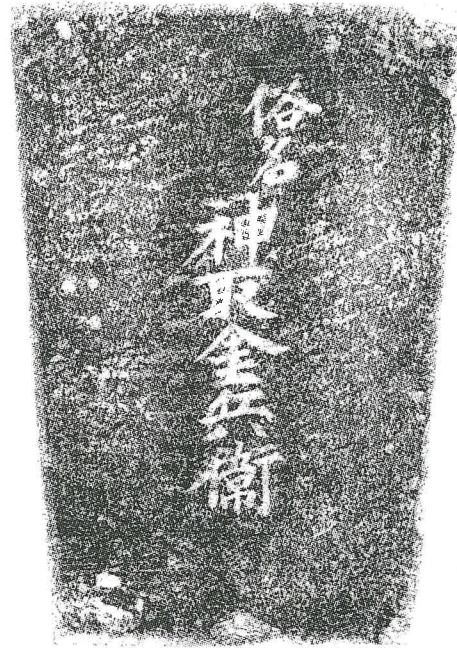 俗名
神取金兵衛